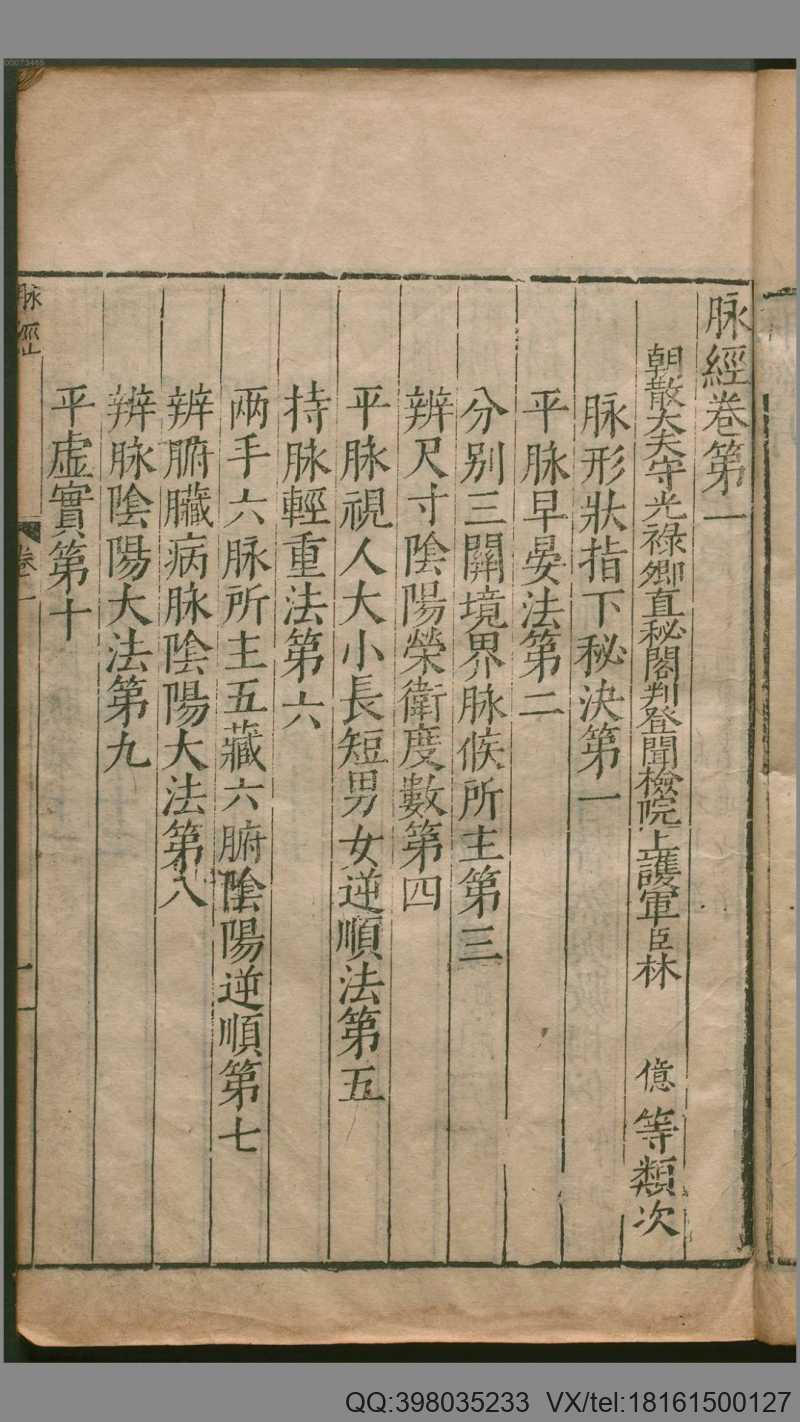 脉經卷第一
朝散大夫守光祿卿直秘閣判登聞檢院上護軍臣林 億等類次
脉形狀指下秘決第一
平脉早晏法第二
分别三關境界脉候所主第三
辨尺寸陰陽榮衛度數第四
平脉視人大小長短男女逆順法第五
持脉輕重法第六
兩手六脉所主五藏六腑陰陽逆順第七
辨腑臟病脉陰陽大法第八
辨脉陰陽大法第九
平虛實第十
脉經
卷一
一
00073465
QQ:398035233 VX/tel:18161500127